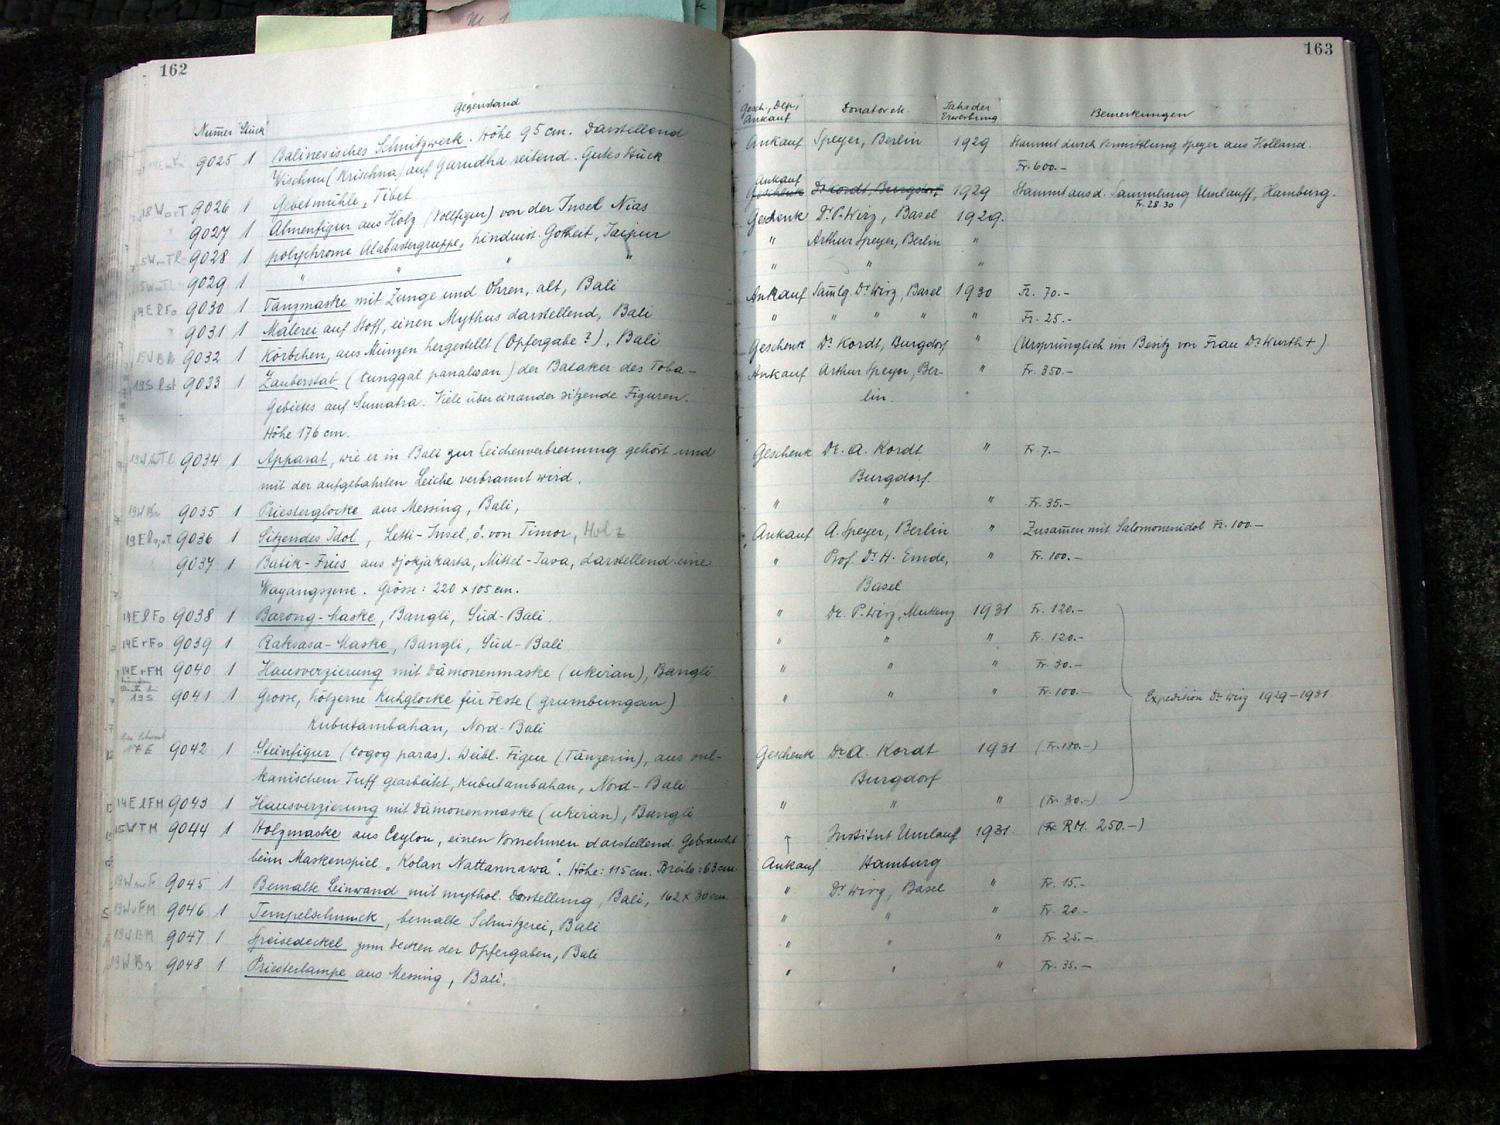 162
Gegenstand
Numer Stück
9025 1 Balinesisches Schnitzwerk. Höhe 95 cm. Darstellend
Wischnu (Krischna) auf Garudha reitend. Gutes Stück
9026 1 Gebetmühle, Tibet
9027 1 Ahnenfigur aus Holz (Vollfigur) von der Insel Nias
9028 1 polychrome Alabastergruppe, hinduist. Gottheit, Jaipur
9029 1 " " "
14ElFo 9030 1 Tanzmaske mit Zunge und Ohren, alt, Bali
" 9031 1 Malerei auf Stoff, einen Mythus darstellend, Bali
9032 1 Körbchen, aus Münzen hergestellt (Opfergabe?), Bali
9033 1 Zauberstab (tunggal panalwan) der Bataker des Toba-
Gebietes auf Sumatra. Viele übereinander sitzende Figuren.
Höhe 176 cm.
9034 1 Apparat, wie er in Bali zur Leichenverbrennung gehört und
mit der aufgebahrten Leiche verbrannt wird.
19WBr 9035 1 Priesterglocke aus Messing, Bali,
9036 1 Sitzendes Idol, Letti-Insel, ö. von Timor, Holz
9037 1 Batik-Fries aus Djokjakarta, Mittel-Java, darstellend eine
Wayangszene. Grösse: 220 x 105 cm.
14ElFo 9038 1 Barong-Maske, Bangli, Süd-Bali.
14ErFo 9039 1 Raksasa-Maske, Bangli, Süd-Bali
14ErFM 9040 1 Hausverzierung mit Dämonenmaske (ukiran), Bangli
19S 9041 1 Grosse, hölzerne Kuhglocke für Feste (grumbungan)
Kubutambahan, Nord-Bali
17E 9042 1 Steinfigur (togog paras). Weibl. Figur (Tänzerin), aus vul-
kanischem Tuff gearbeitet, Kubutambahan, Nord-Bali
14ElFM 9043 1 Hausverzierung mit Dämonenmaske (ukiran), Bangli
15WTM 9044 1 Holzmaske aus Ceylon, einen Vornehmen darstellend. Gebraucht
beim Maskenspiel "Kolan Nattannawa". Höhe: 115 cm. Breite: 63 cm.
9045 1 Bemalte Leinwand mit mythol. Darstellung, Bali, 162 x 30 cm
9046 1 Tempelschmuck, bemalte Schnitzerei, Bali
9047 1 Speisedeckel zum Decken der Opfergaben, Bali
19WBr 9048 1 Priesterlampe aus Messing, Bali.
163
Gesch., Dep., Ankauf Donatoren Jahr der Erwerbung Bemerkungen
Ankauf Speyer, Berlin 1929 Stammt durch Vermittlung Speyer aus Holland
Fr. 600.-
Ankauf
Geschenk Dr Kordt Burgdorf, 1929 Stammt aus d. Sammlung Umlauff, Hamburg.
Fr. 28.30
Geschenk Dr. P. Wirz, Basel 1929.
" Arthur Speyer, Berlin "
" " "
Ankauf Samlg. Dr Wirz, Basel 1930 Fr. 70.-
" " " " " " Fr. 25.-
Geschenk Dr. Kordt, Burgdorf " (Ursprünglich im Besitz von Frau Dr Wurth +)
Ankauf Arthur Speyer, Ber- " Fr. 350.-
lin.
Geschenk Dr. A. Kordt " Fr. 7.-
Burgdorf.
" " " Fr. 35.-
Ankauf A. Speyer, Berlin " Zusammen mit Salomonenidol Fr. 100.-
" Prof. Dr. H. Emde, " Fr. 100.-
Basel
" Dr. P. Wirz, 1931 Fr. 120.-
" " " Fr. 120.-
" " " Fr. 30.-
" " " Fr. 100.-
Expedition Dr. Wirz 1929-1931.
Geschenk Dr. A. Kordt 1931 (Fr. 180.-)
Burgdorf
" " " (Fr. 30.-)
" Institut Umlauf 1931. (Fr. RM. 250.-)
Ankauf Hamburg
" Dr Wirz, Basel " Fr. 15.-
" " " Fr. 20.-
" " " Fr. 25.-
" " " Fr. 35.-